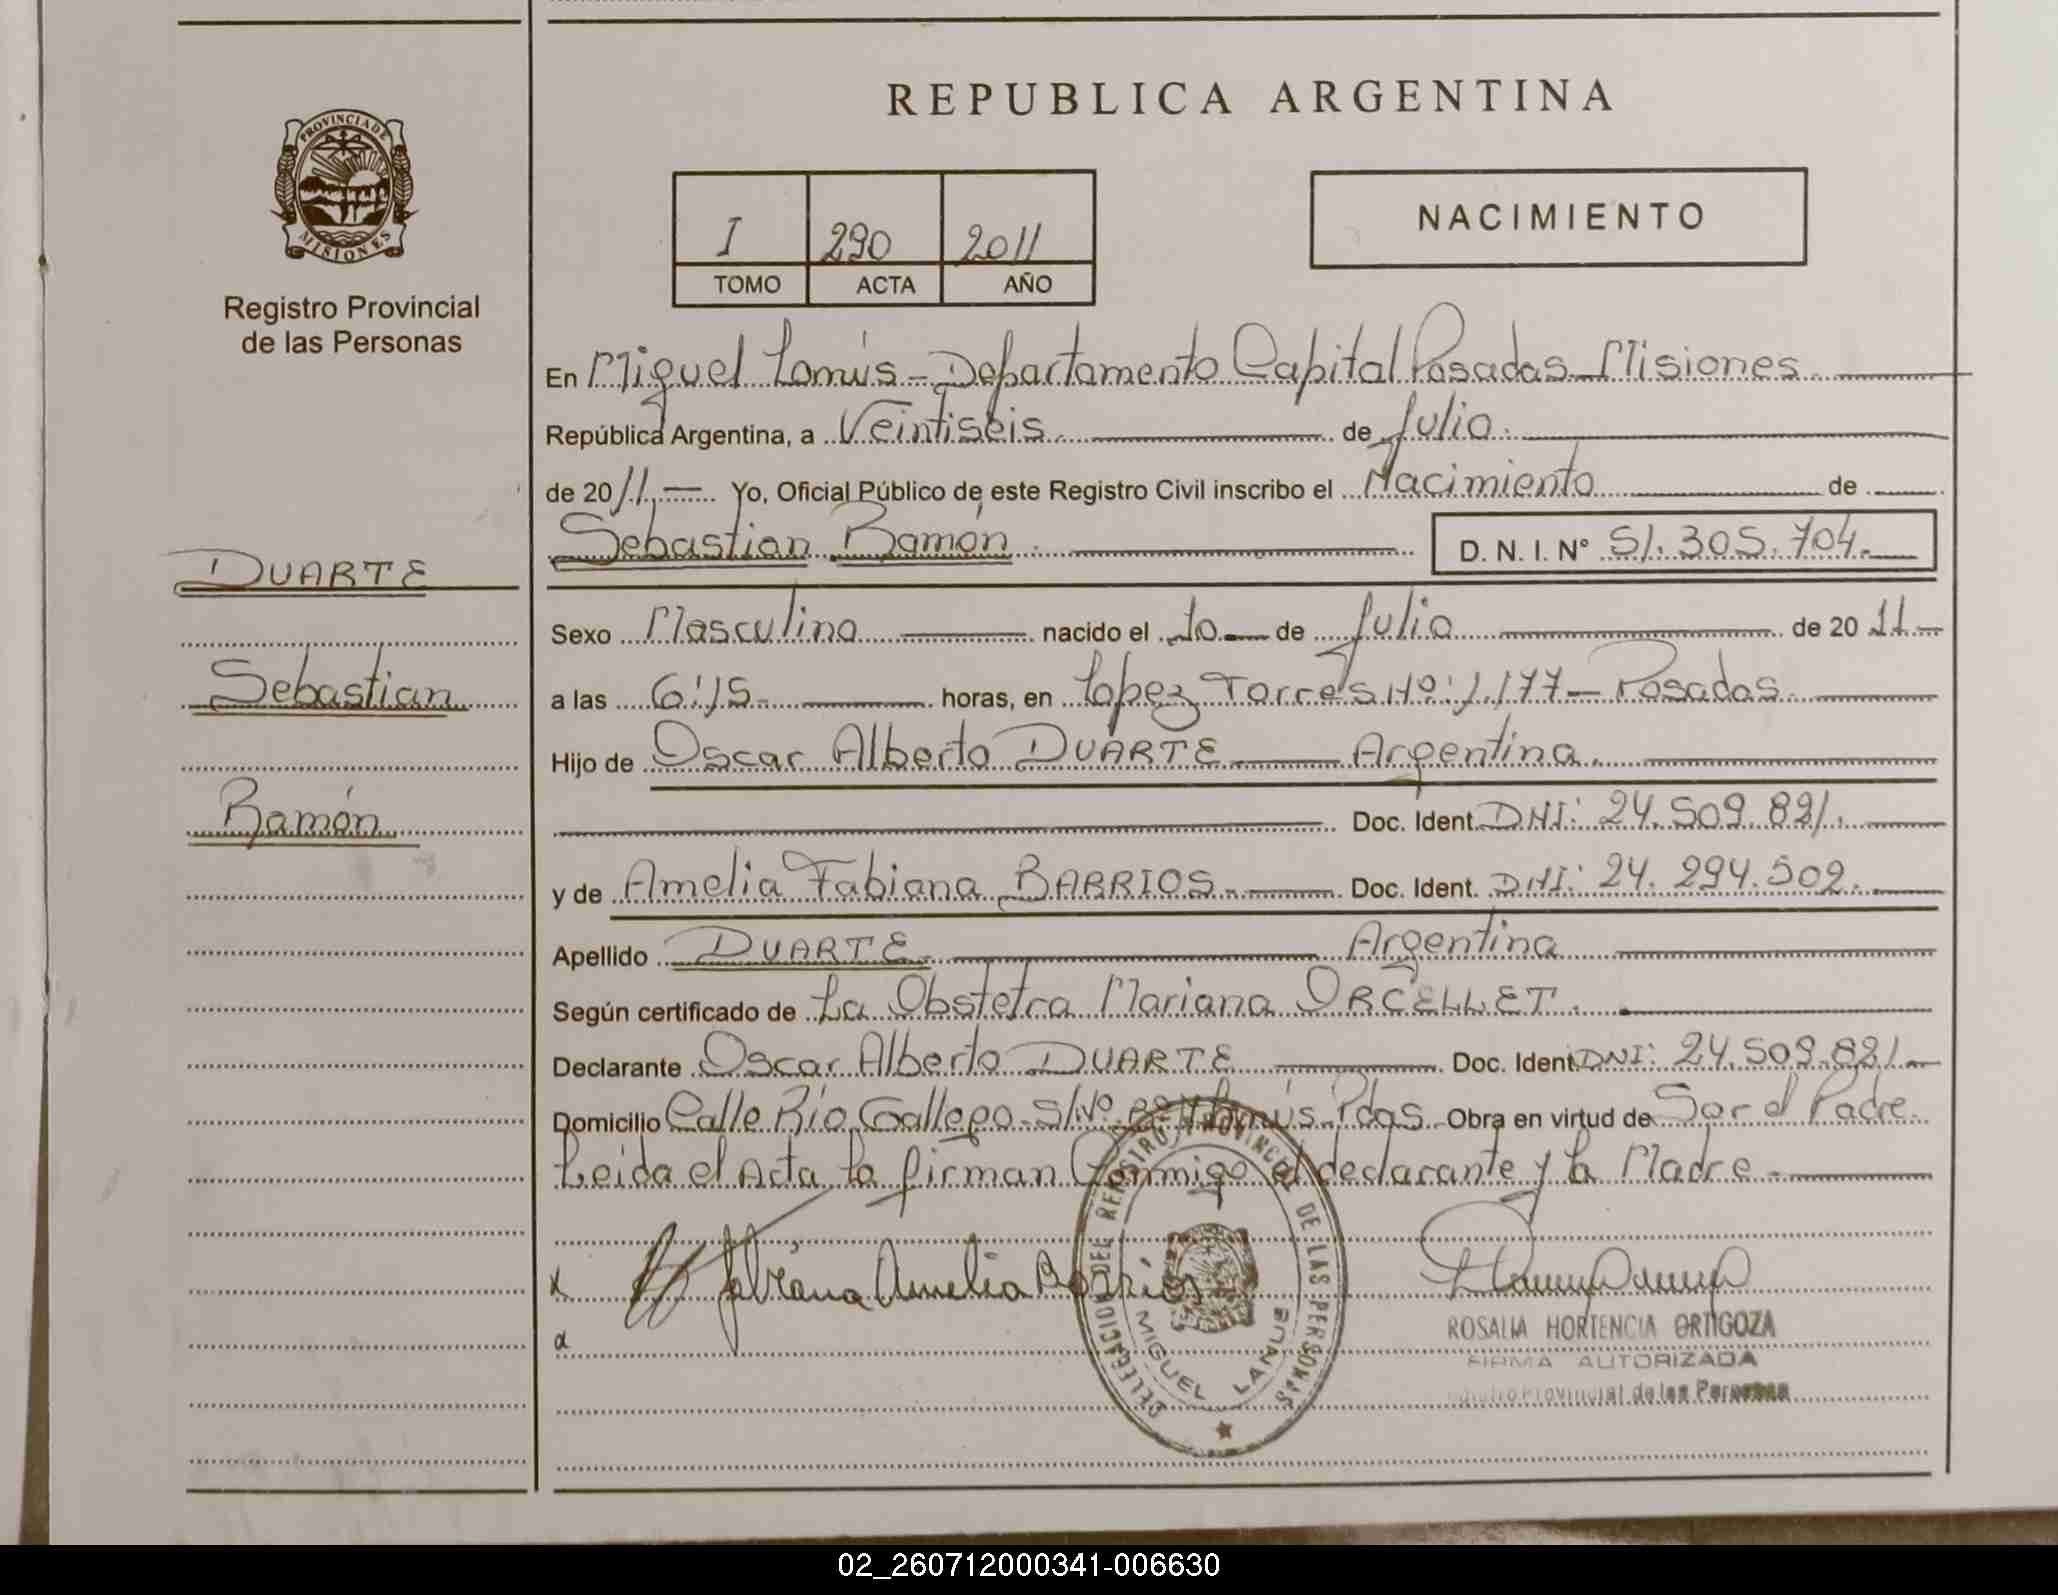 REPUBLICA ARGENTINA
PROVINCIA DE MISIONES
Registro Provincial
de las Personas
I 290 2011
TOMO ACTA AÑO
NACIMIENTO
En Miguel Lanús - Departamento Capital Posadas - Misiones
República Argentina, a Veintiseis de Julio
de 2011 Yo, Oficial Público de este Registro Civil inscribo el Nacimiento de
Sebastian Ramón D. N. I. Nº 51.305.704.
DUARTE
Sebastian
Ramón
Sexo Masculino nacido el 10 de Julio de 2011
a las 6:15 horas, en Lopez Torres Nº: 1.177 - Posadas
Hijo de Oscar Alberto DUARTE Argentina.
Doc. Ident. DNI: 24.509.821.
y de Amelia Fabiana BARRIOS Doc. Ident. DNI: 24.294.502.
Apellido DUARTE Argentina
Según certificado de La Obstetra Mariana ORCELLET.
Declarante Oscar Alberto DUARTE Doc. Ident. DNI: 24.509.821
Domicilio Calle Río Gallego S/Nº Lanús - Pdas. Obra en virtud de Ser el Padre
Leida el Acta la firman Conmigo el declarante y la Madre
x Fabiana Amelia Barrios
DELEGACION DEL REGISTRO PROVINCIAL DE LAS PERSONAS
MIGUEL LANUS
ROSALIA HORTENCIA ORTIGOZA
FIRMA AUTORIZADA
Registro Provincial de las Personas
02_260712000341-006630